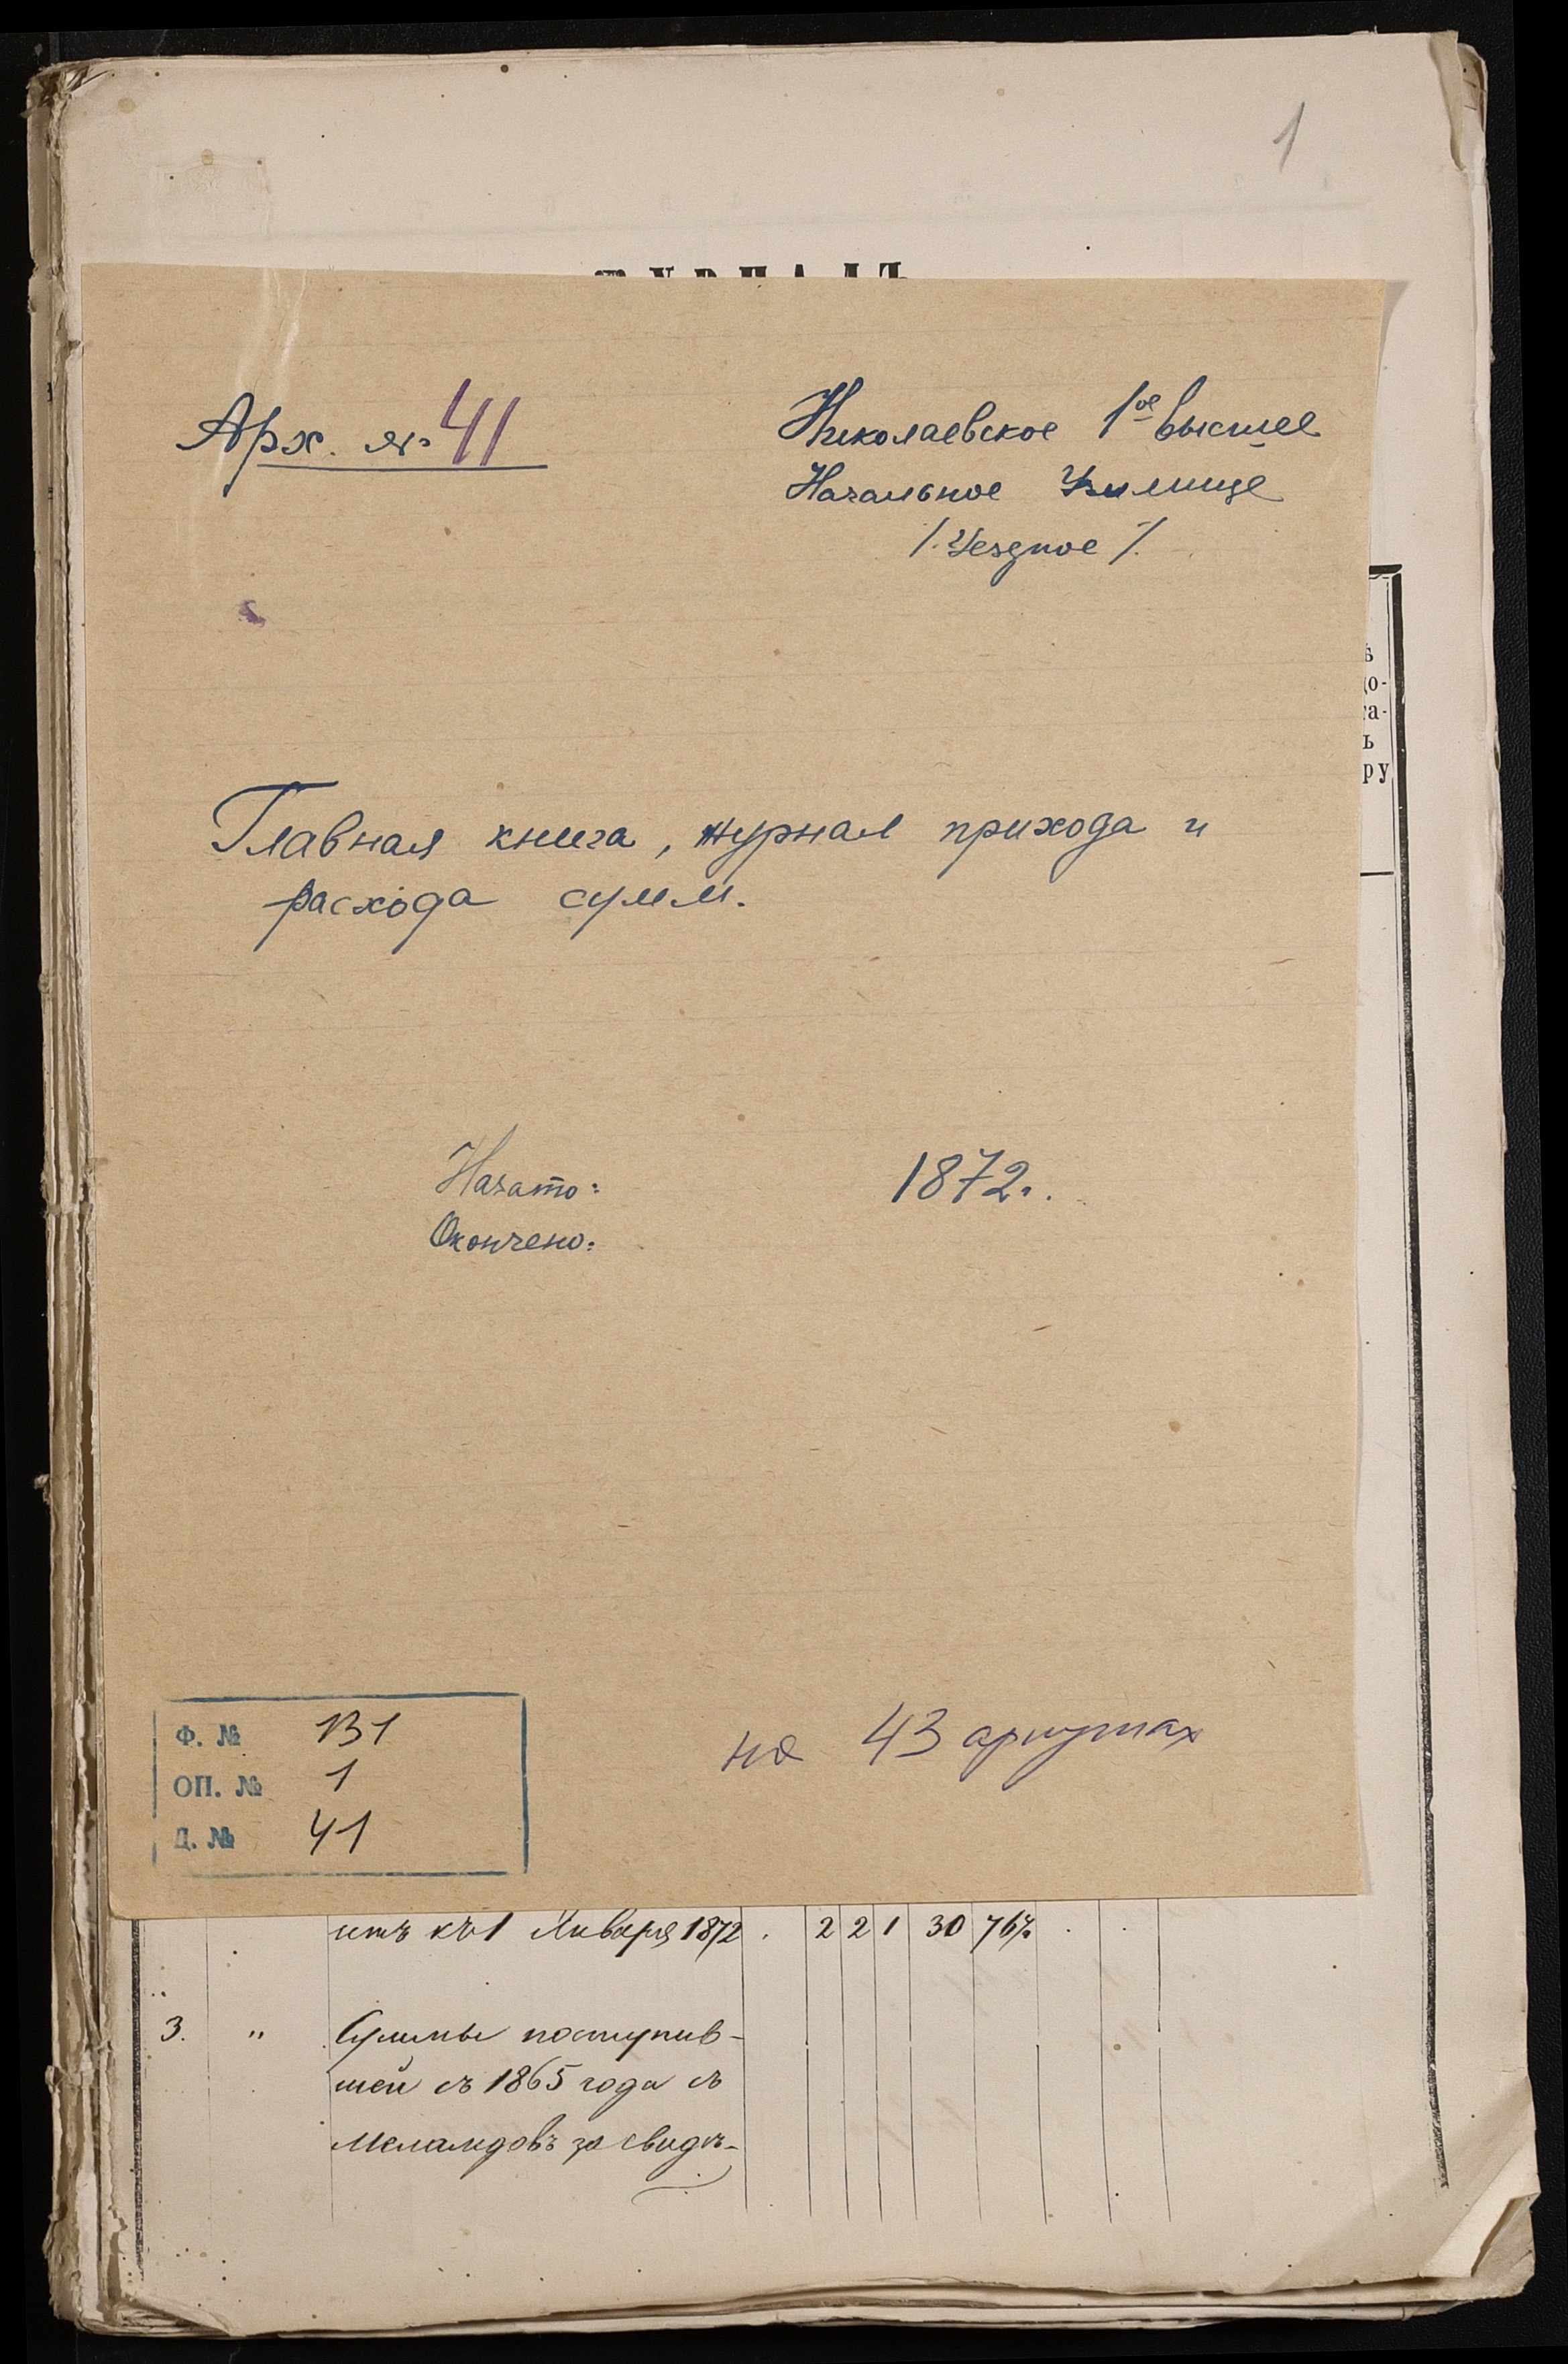 1
ЖУРНАЛЪ
Арх. № 41
Николаевское 1ое высшее
Начальное Училище
/. Уездное /.
Главная книга, журнал прихода и
расхода сумм.
Начато: 1872 г.
Окончено:
Ф. № 131
ОП. № 1
Д. № 41
на 43 аркушах
ъ
до-
та-
ъ
ру
къ 1 Января 1872 . 2 2 1 30 76
3. " Суммы поступив-
шей съ 1865 года съ
Меламдовъ за свидѣ-